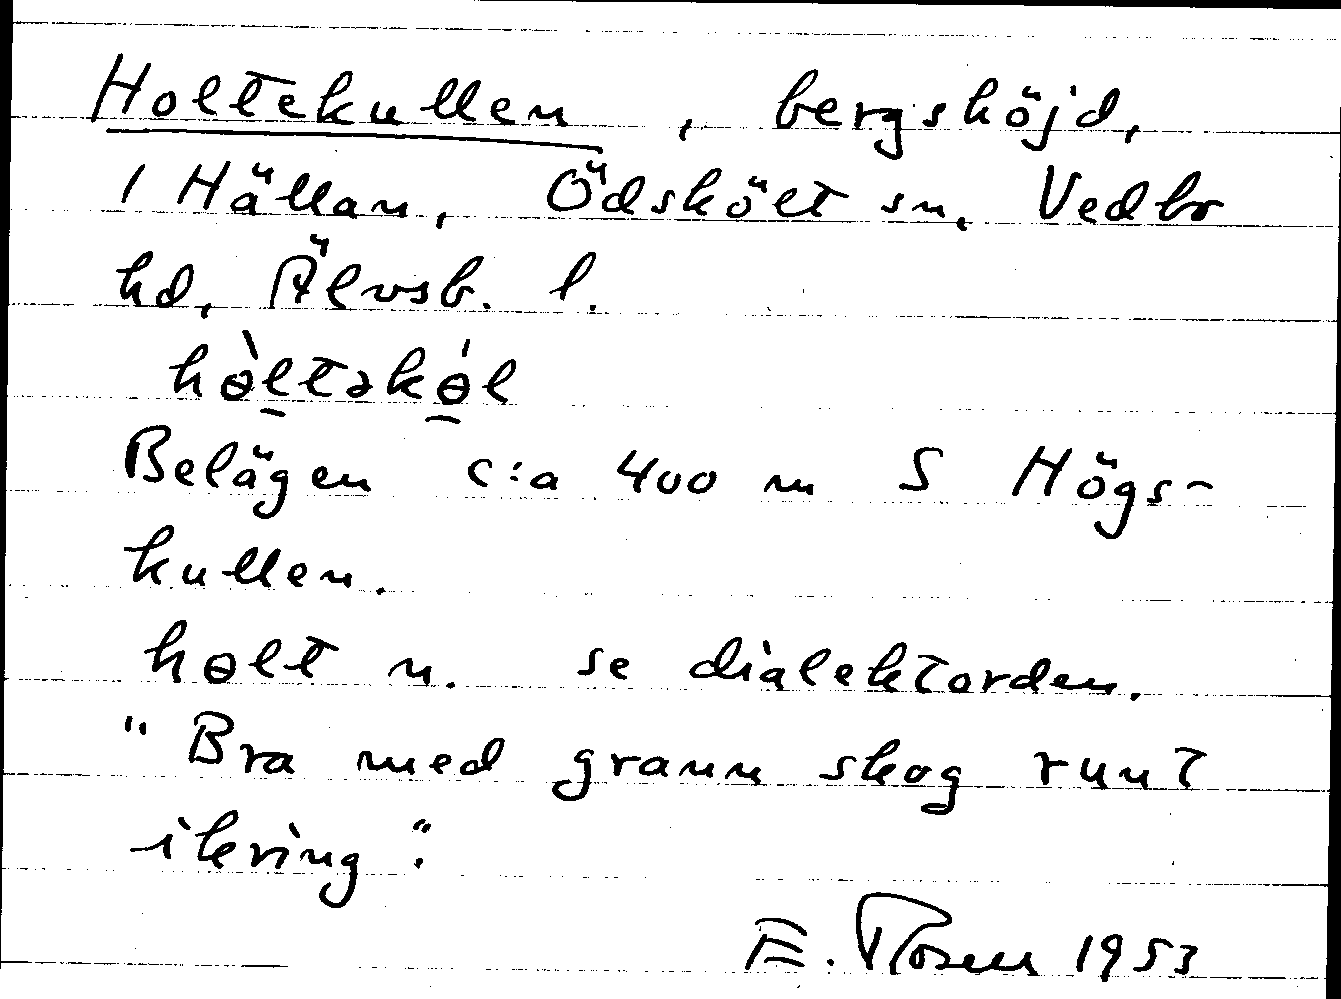 Holtekullen, bergshöjd,
1 Hällan, Ödskölt sn, Vedbo
hd, Älvsb. l.
hɵ̀ltəkɵ́l
Belägen c:a 400 m S Högs-
kullen.
hɵlt n. se dialektorden.
"Bra med grann skog runt
ikring".
E. Rosen 1953